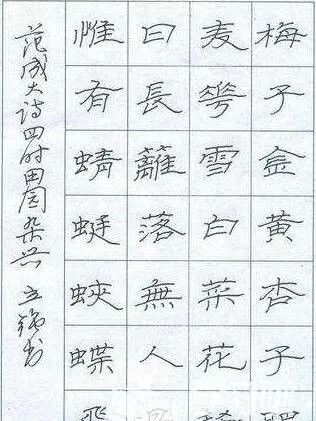 梅子金黄杏子
麦華雪白菜花
日長籬落無人
惟有蜻蜓蛺蝶飛
范成大诗四时田园杂兴 立 书